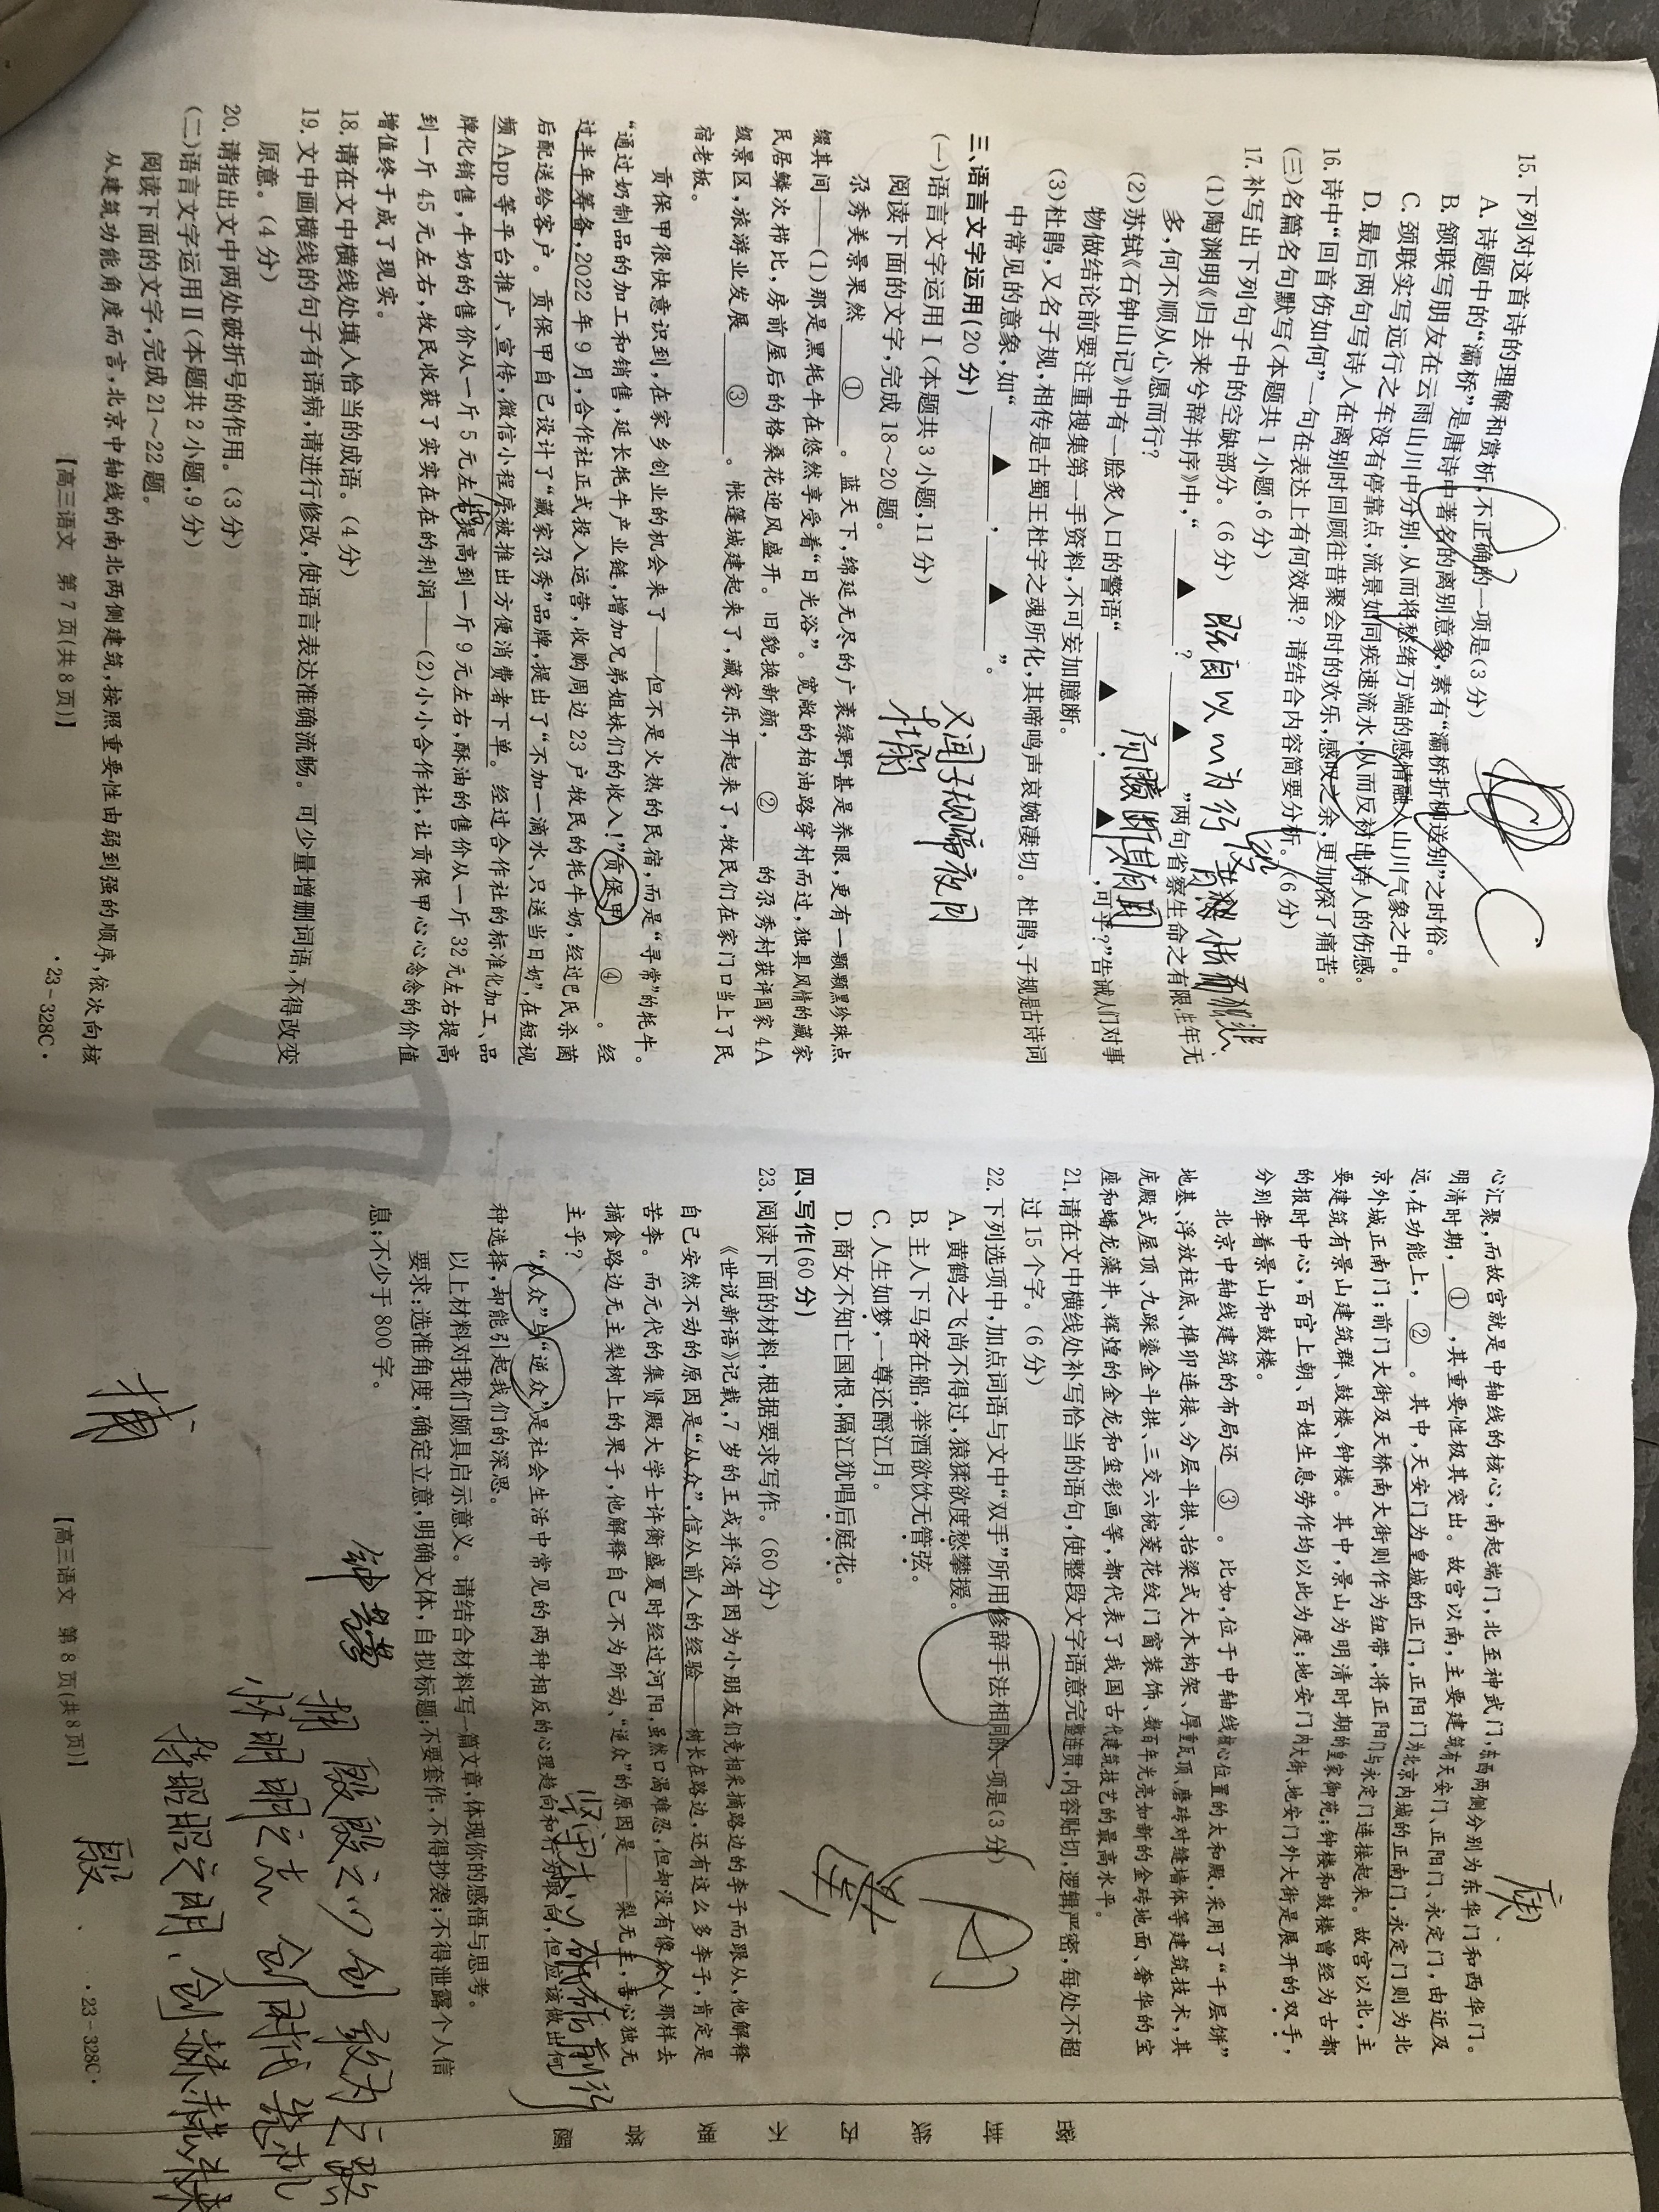 15. 下列对这首诗的理解和赏析,不正确的一项是(3分)
A. 诗题中的“灞桥”是唐诗中著名的离别意象,素有“灞桥折柳送别”之时俗。
B. 颔联写朋友在云雨山川中分别,从而将愁绪万端的感情融入山川气象之中。
C. 颈联实写远行之车没有停靠点,流景如同疾速流水,从而反衬出诗人的伤感。
D. 最后两句写诗人在离别时回顾往昔聚会时的欢乐,感叹之余,更加深了痛苦。
16. 诗中“回首伤如何”一句在表达上有何效果?请结合内容简要分析。(6分)
(三)名篇名句默写(本题共1小题,6分)
17. 补写出下列句子中的空缺部分。(6分)
(1)陶渊明《归去来兮辞并序》中,“▲?▲”两句省察生命之有限,生年无
多,何不顺从心愿而行?
(2)苏轼《石钟山记》中有一脍炙人口的警语“▲,▲,可乎?”告诫人们对事
物做结论前要注重搜集第一手资料,不可妄加臆断。
(3)杜鹃,又名子规,相传是古蜀王杜宇之魂所化,其啼鸣声哀婉凄切。杜鹃、子规是古诗词
中常见的意象,如“▲,▲”。
又闻子规啼夜月
杜鹃
三、语言文字运用(20分)
(一)语言文字运用Ⅰ(本题共3小题,11分)
阅读下面的文字,完成18~20题。
尕秀美景果然①。蓝天下,绵延无尽的广袤绿野甚是养眼,更有一颗颗黑珍珠点
缀其间——(1)那是黑牦牛在悠然享受着“日光浴”。宽敞的柏油路穿村而过,独具风情的藏家
民居鳞次栉比,房前屋后的格桑花迎风盛开。旧貌换新颜,②的尕秀村获评国家4A
级景区,旅游业发展③。帐篷城建起来了,藏家乐开起来了,牧民们在家门口当上了民
宿老板。
贡保甲很快意识到,在家乡创业的机会来了——但不是火热的民宿,而是“寻常”的牦牛。
“通过奶制品的加工和销售,延长牦牛产业链,增加兄弟姐妹们的收入!”贡保甲④。经
过半年筹备,2022年9月,合作社正式投入运营,收购周边23户牧民的牦牛奶,经过巴氏杀菌
后配送给客户。贡保甲自己设计了“藏家尕秀”品牌,提出了“不加一滴水、只送当日奶”,在短视
频App等平台推广、宣传,微信小程序被推出方便消费者下单。经过合作社的标准化加工、品
牌化销售,牛奶的售价从一斤5元左右提高到一斤9元左右,酥油的售价从一斤32元左右提高
到一斤45元左右,牧民收获了实实在在的利润——(2)小小合作社,让贡保甲心心念念的价值
增值终于成了现实。
18. 请在文中横线处填入恰当的成语。(4分)
19. 文中画横线的句子有语病,请进行修改,使语言表达准确流畅。可少量增删词语,不得改变
原意。(4分)
20. 请指出文中两处破折号的作用。(3分)
(二)语言文字运用Ⅱ(本题共2小题,9分)
阅读下面的文字,完成21~22题。
从建筑功能角度而言,北京中轴线的南北两侧建筑,按照重要性由弱到强的顺序,依次向核
【高三语文 第7页(共8页)】
·23-328C·
心汇聚,而故宫就是中轴线的核心,南起端门,北至神武门,东西两侧分别为东华门和西华门。
明清时期,①,其重要性极其突出。故宫以南,主要建筑有天安门、正阳门、永定门,由近及
远,在功能上,②。其中,天安门为皇城的正门,正阳门为北京内城的正南门,永定门则为北
京外城正南门;前门大街及天桥南大街则作为纽带,将正阳门与永定门连接起来。故宫以北,主
要建筑有景山建筑群、鼓楼、钟楼。其中,景山为明清时期的皇家御苑;钟楼和鼓楼曾经为古都
的报时中心,百官上朝、百姓生息劳作均以此为度;地安门内大街、地安门外大街是展开的双手,
分别牵着景山和鼓楼。
北京中轴线建筑的布局还③。比如,位于中轴线核心位置的太和殿,采用了“千层饼”
地基、浮放柱底、榫卯连接、分层斗拱、抬梁式大木构架、厚重瓦顶、磨砖对缝墙体等建筑技术,其
庑殿式屋顶、九踩鎏金斗拱、三交六椀菱花纹门窗装饰、数百年光亮如新的金砖地面、奢华的宝
座和蟠龙藻井、辉煌的金龙和玺彩画等,都代表了我国古代建筑技艺的最高水平。
21. 请在文中横线处补写恰当的语句,使整段文字语意完整连贯,内容贴切,逻辑严密,每处不超
过15个字。(6分)
22. 下列选项中,加点词语与文中“双手”所用修辞手法相同的一项是(3分)
A. 黄鹤之飞尚不得过,猿猱欲度愁攀援。
B. 主人下马客在船,举酒欲饮无管弦。
C. 人生如梦,一尊还酹江月。
D. 商女不知亡国恨,隔江犹唱后庭花。
四、写作(60分)
23. 阅读下面的材料,根据要求写作。(60分)
《世说新语》记载,7岁的王戎并没有因为小朋友们竞相采摘路边的李子而跟从,他解释
自己安然不动的原因是“从众”,信从前人的经验——树长在路边,还有这么多李子,肯定是
苦李。而元代的集贤殿大学士许衡盛夏时经过河阳,虽然口渴难忍,但却没有像众人那样去
摘食路边无主梨树上的果子,他解释自己不为所动、“逆众”的原因是——梨无主,吾心独无
主乎?
“从众”与“逆众”是社会生活中常见的两种相反的心理趋向和行为取向,但应该做出何
种选择,却能引起我们的深思。
以上材料对我们颇具启示意义。请结合材料写一篇文章,体现你的感悟与思考。
要求:选准角度,确定立意,明确文体,自拟标题;不要套作,不得抄袭;不得泄露个人信
息;不少于800字。
【高三语文 第8页(共8页)】
·23-328C·